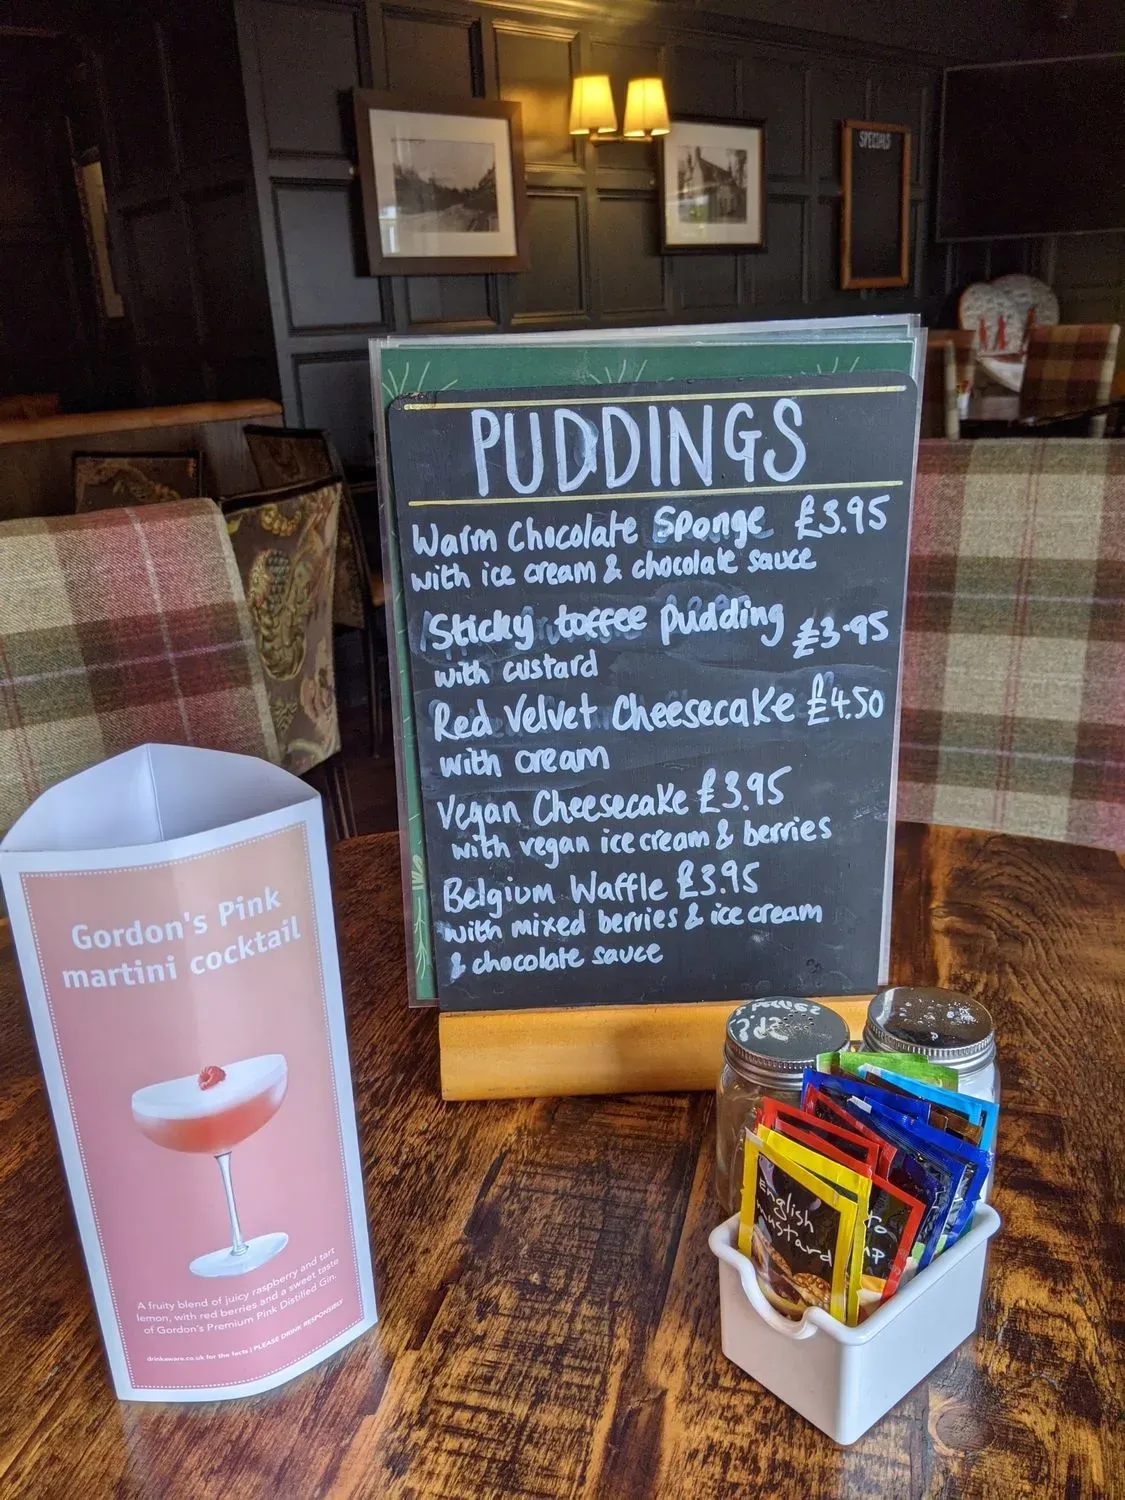 SPECIALS
PUDDINGS
Warm Chocolate Sponge £3.95
with ice cream & chocolate sauce
Sticky toffee pudding £3.95
with custard
Red Velvet Cheesecake £4.50
with cream
Vegan Cheesecake £3.95
with vegan ice cream & berries
Belgium Waffle £3.95
with mixed berries & ice cream
& chocolate sauce
Gordon's Pink
martini cocktail
A fruity blend of juicy raspberry and tart
lemon, with red berries and a sweet taste
of Gordon's Premium Pink Distilled Gin.
drinkaware.co.uk for the facts | PLEASE DRINK RESPONSIBLY
English
mustard